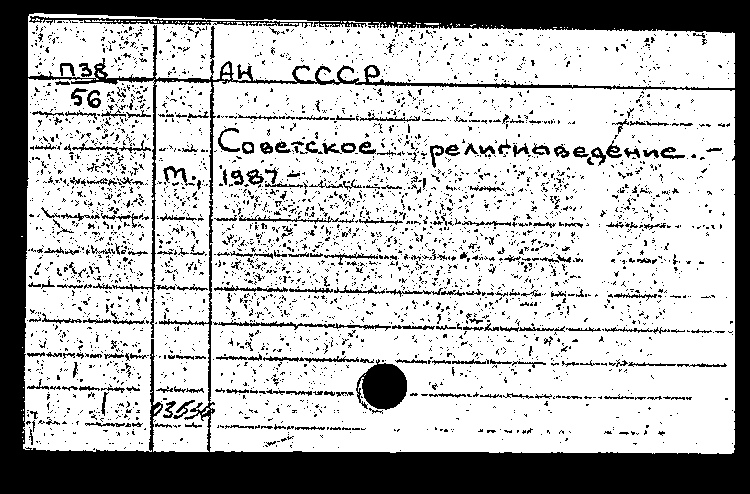 П38 АН СССР
56
Советское религиоведение. –
М., 1987 –
03536